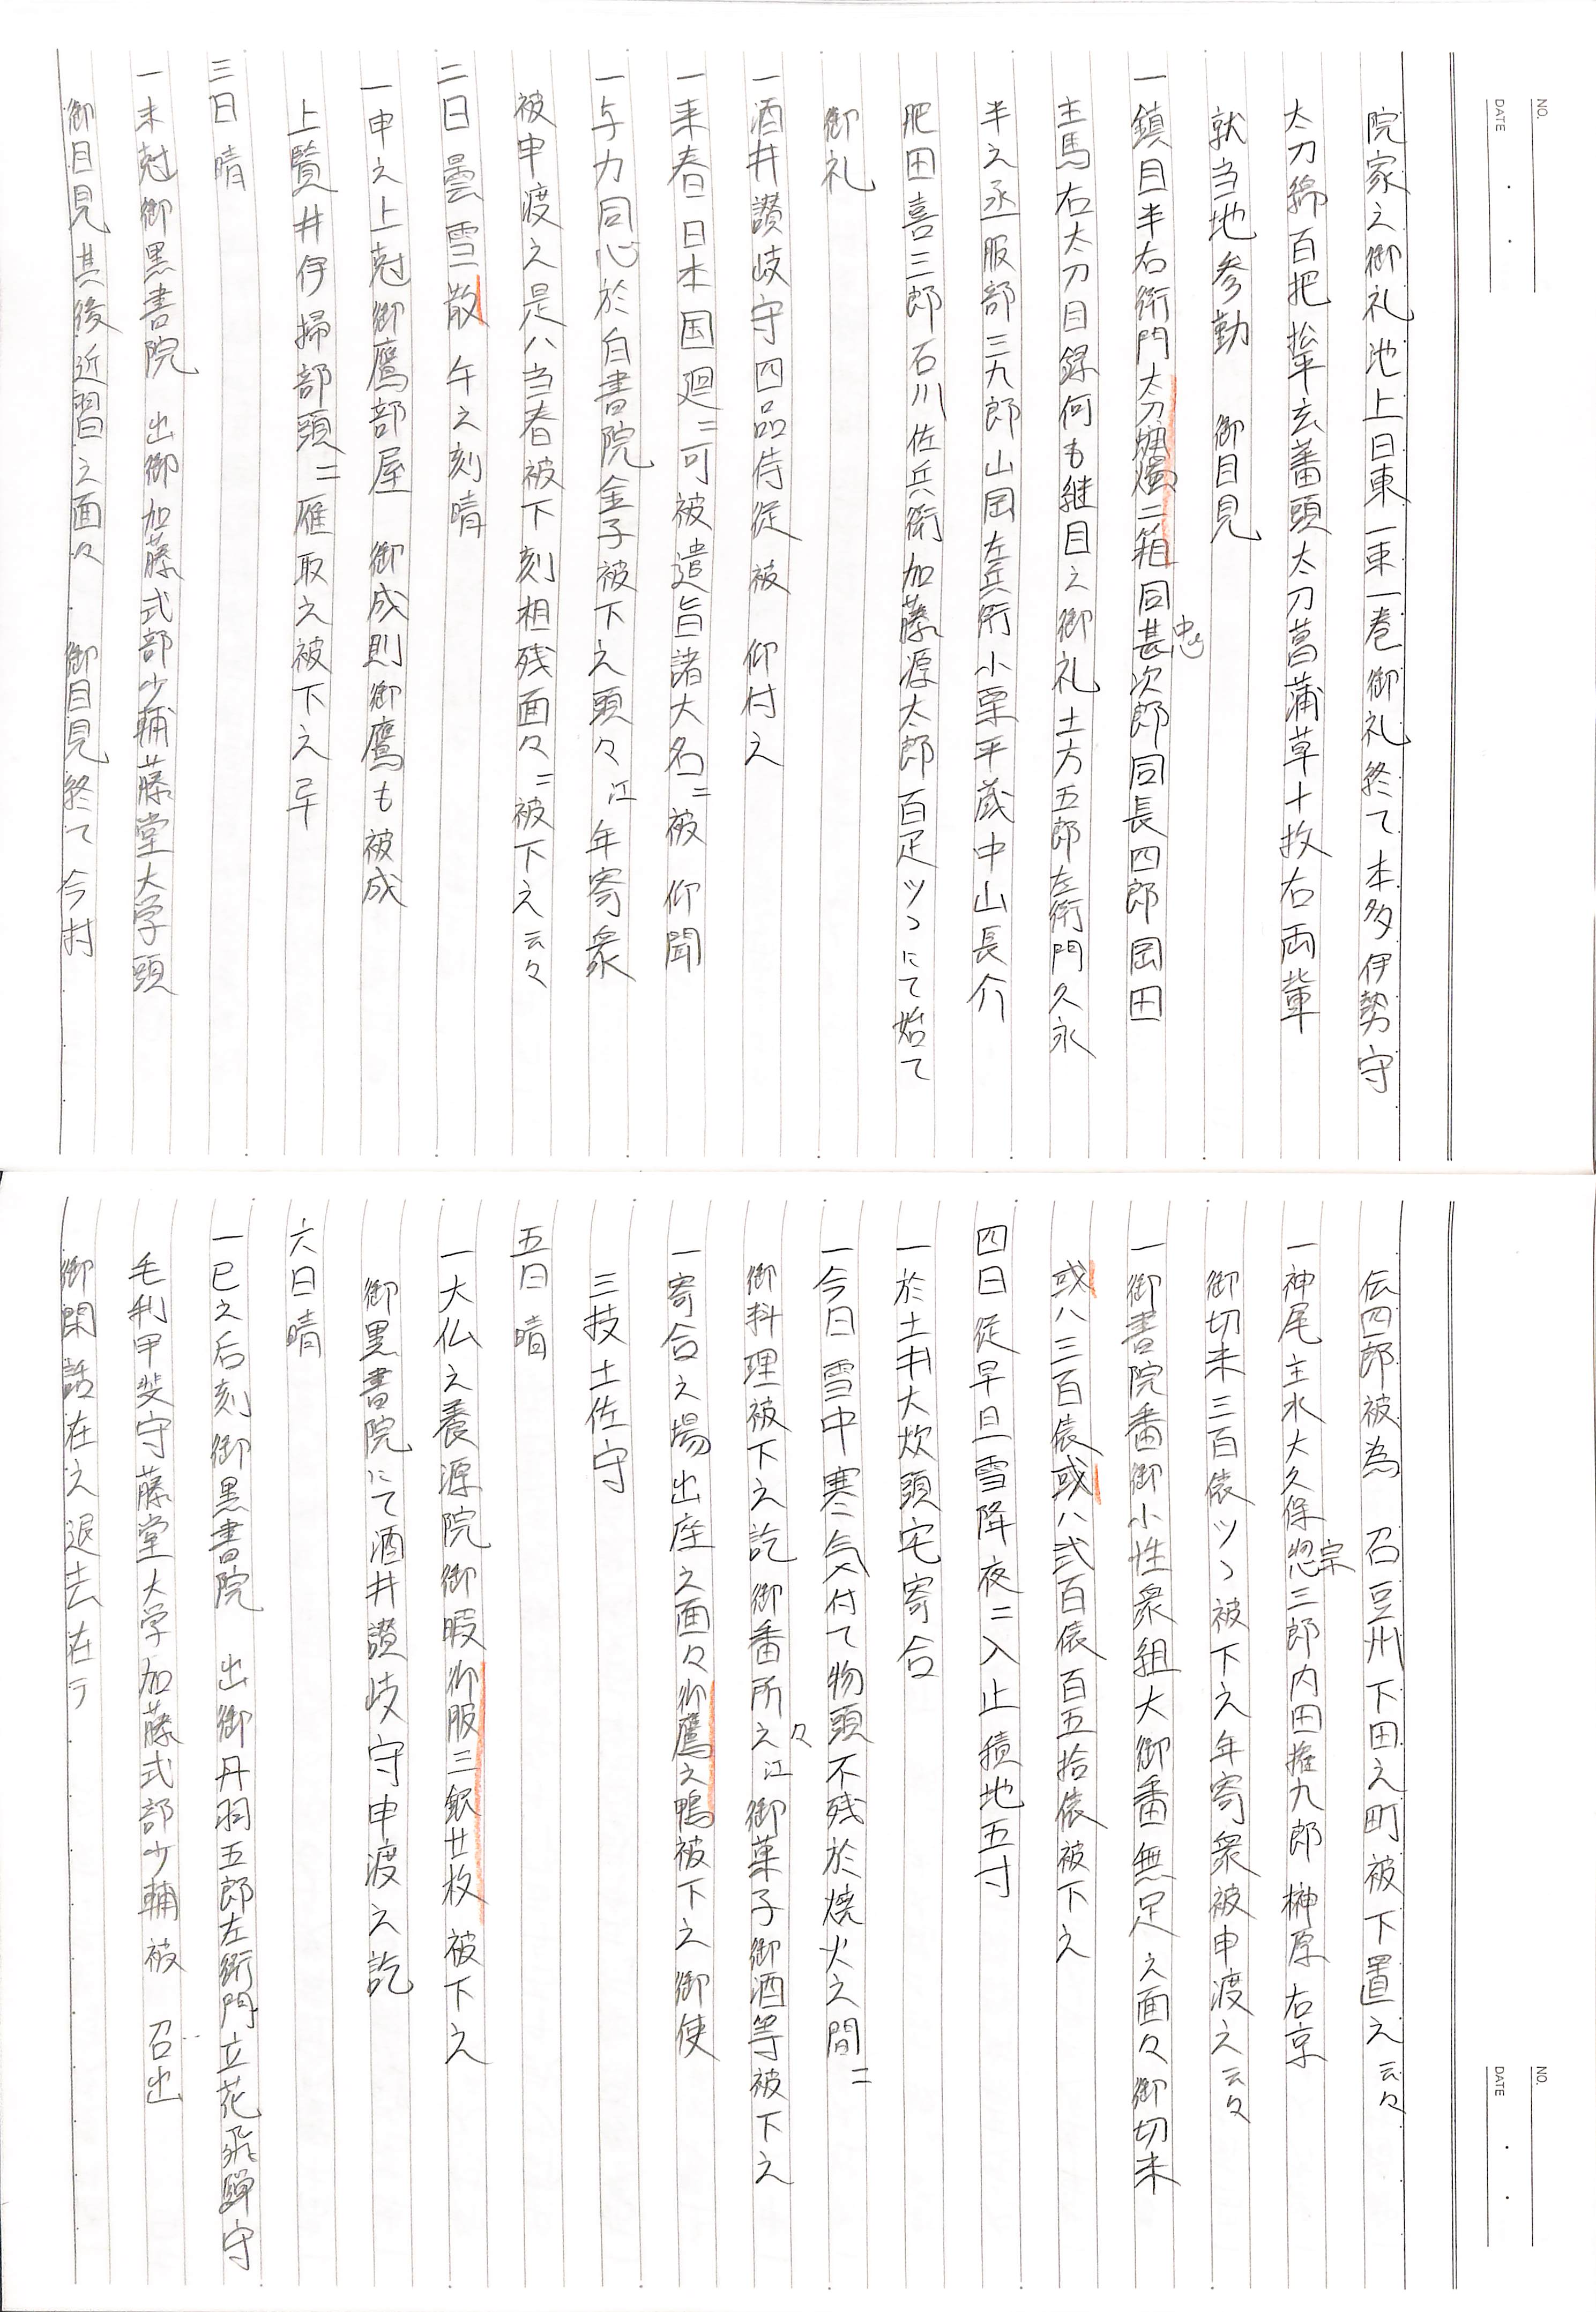 NO.
DATE
院家之御礼池上日東一束一巻御礼終て本多伊勢守
太刀綿百把挙玄蕃頭太刀菖蒲草十枚右両輩
就当地参勤 御目見
一鎮目半右衛門太刀蝋燭二箱同甚次郎同長四郎岡田
忠
主馬右太刀目録何も継目之御礼土方五郎左衛門久永
半之丞服部三九郎山岡左兵衛小栗平蔵中山長介
肥田喜三郎石川佐兵衛加藤源太郎百疋ツヽにて始て
御礼
一酒井讃岐守四品侍従被 仰付之
一来春日本国廻ニ可被遣旨諸大名ニ被 仰聞
一与力同心於白書院金子被下之頭々江年寄衆
被申渡之是ハ当春被下刻相残面々ニ被下之云々
二日 曇雪散 午之刻晴
一申之上尅御鷹部屋 御成則御鷹も被成
上覧井伊掃部頭ニ雁取之被下之畢
三日 晴
一未尅御黒書院 出御加藤式部少輔藤堂大学頭
御目見其後近習之面々 御目見終て今村
NO.
DATE
伝四郎被為 召豆州下田之町被下置之云々
一神尾主水大久保惣三郎内田権九郎榊原右京
宗
御切米三百俵ツヽ被下之年寄衆被申渡之云々
一御書院番御小性衆組大御番無足之面々御切米
或ハ三百俵或ハ弐百俵百五拾俵被下之
四日 従早旦雪降夜ニ入止積地五寸
一於土井大炊頭宅寄合
一今日雪中寒気付て物頭不残於焼火之間ニ
御料理被下之訖御番所之江御菓子御酒等被下之
々
一寄合之場出座之面々御鷹之鴨被下之御使
三枝土佐守
五日 晴
一大仏之養源院御暇御服三銀廿枚被下之
御黒書院にて酒井讃岐守申渡之訖
六日 晴
一巳之后刻御黒書院 出御丹羽五郎左衛門立花飛騨守
毛利甲斐守藤堂大学加藤式部少輔被 召出
御閑話在之退去在テ